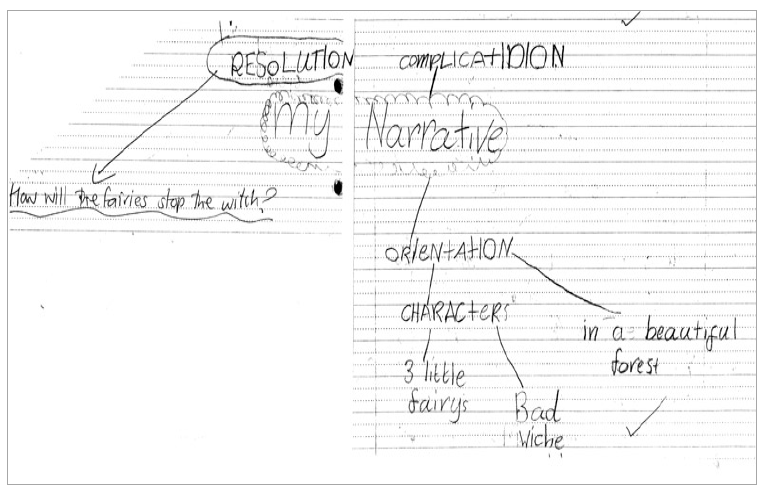 RESOLUTION
compLICAtIDION
My Narrative
How will the fairies stop the witch?
ORIeNtAtION
CHARActeRS
in a beautiful
forest
3 little
fairys
Bad
Wiche